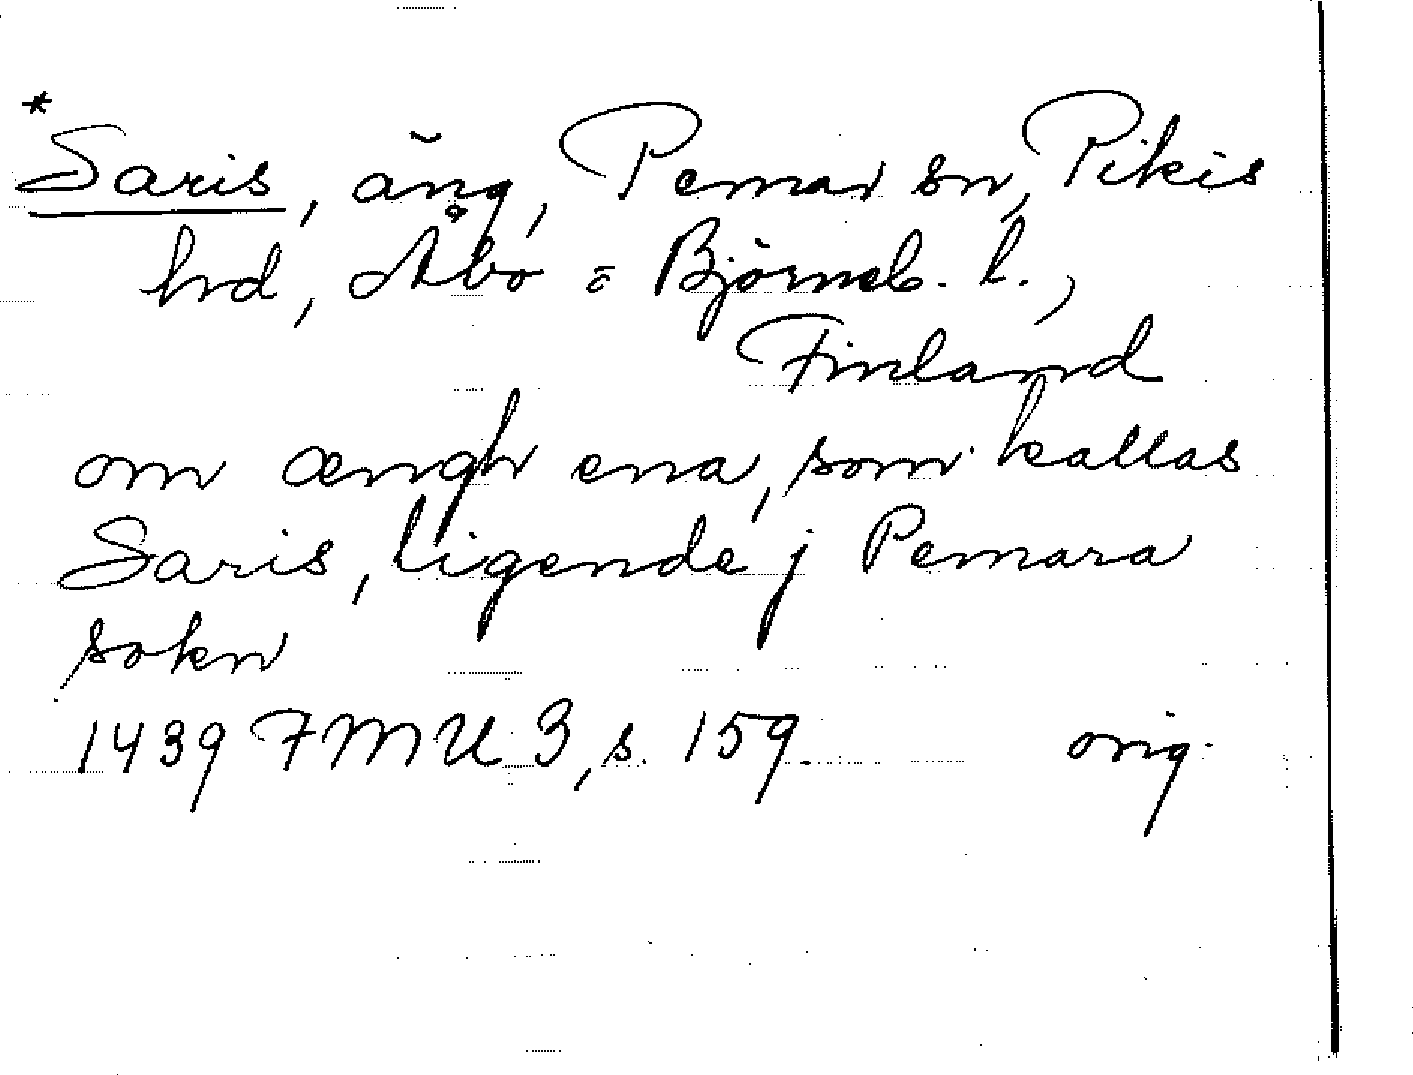 *
Saris, äng, Pemar sn, Pikis
hd, Åbo o Björneb. l.,
Finland
om ængh ena, som kallas
Saris, ligende j Pemara
sokn
1439 FMU 3, s. 159. orig.